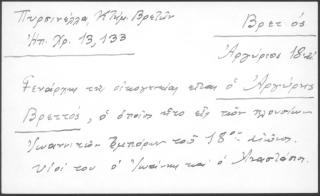 Πυρσινέλλα, Κτήμ. Βρετῶν
Ἠπ. Χρ. 13, 133
Βρετός
Ἀργύριος 18 αἰ
Γενάρχης τῆς οἰκογενείας εἶναι ὁ Ἀργύρης
Βρεττός, ὁ ὁποῖος ἦτο εἷς τῶν πλουσίων
Ἰωαννιτῶν ἐμπόρων τοῦ 18ου αἰῶνος.
Υἱοί του ὁ Ἰωάννης καὶ ὁ Ἀναστάσης.